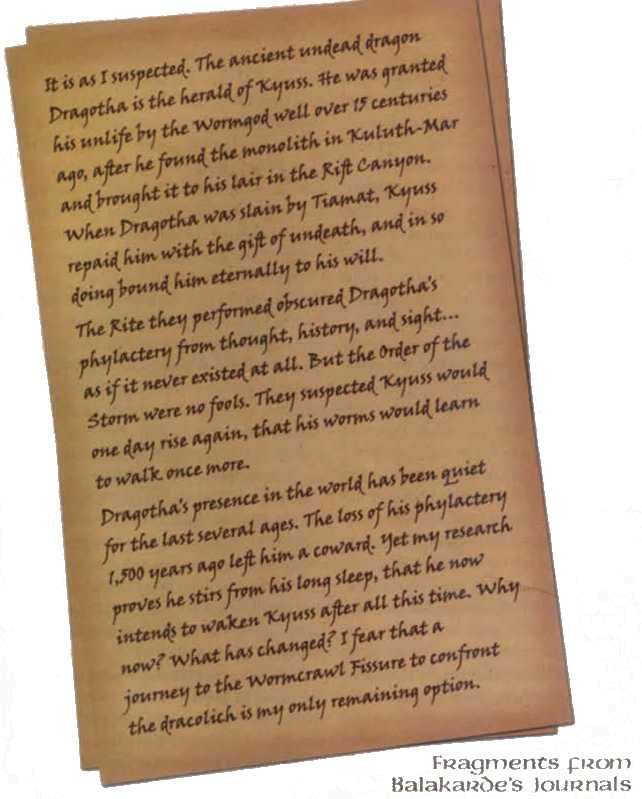 It is as I suspected. The ancient undead dragon
Dragotha is the herald of Kyuss. He was granted
his unlife by the Wormgod well over 15 centuries
ago, after he found the monolith in Kuluth-Mar
and brought it to his lair in the Rift Canyon.
When Dragotha was slain by Tiamat, Kyuss
repaid him with the gift of undeath, and in so
doing bound him eternally to his will.
The Rite they performed obscured Dragotha's
phylactery from thought, history, and sight...
as if it never existed at all. But the Order of the
Storm were no fools. They suspected Kyuss would
one day rise again, that his worms would learn
to walk once more.
Dragotha's presence in the world has been quiet
for the last several ages. The loss of his phylactery
1,500 years ago left him a coward. Yet my research
proves he stirs from his long sleep, that he now
intends to waken Kyuss after all this time. Why
now? What has changed? I fear that a
journey to the Wormcrawl Fissure to confront
the dracolich is my only remaining option.
Fragments from
Balakarde's Journals